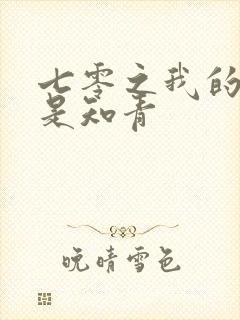 七零之我的
是知青
晚晴雪色